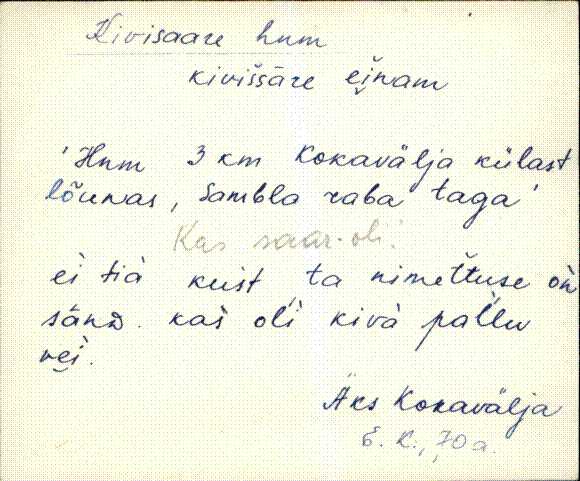 Kivisaare hnm
kivissāre ei̬nam
'Hnm 3 km Kokavälja külast
lõunas, Sambla raba taga'
Kas saar oli?
ei tià kust ta nimettuse òn
sānᴅ. kas oli kivà pal̀lu
vei.
Äks Kokavälja
E. K., 70 a.